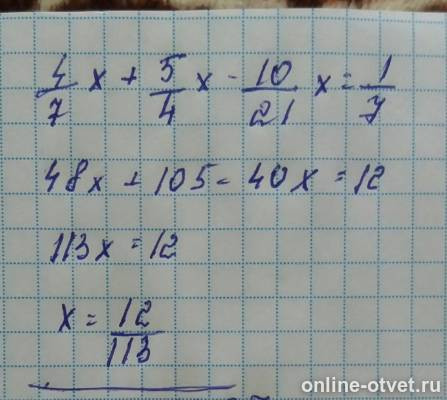 4/7 x + 5/4 x - 10/21 x = 1/7
48x + 105 - 40x = 12
113x = 12
x = 12/113
online-otvet.ru